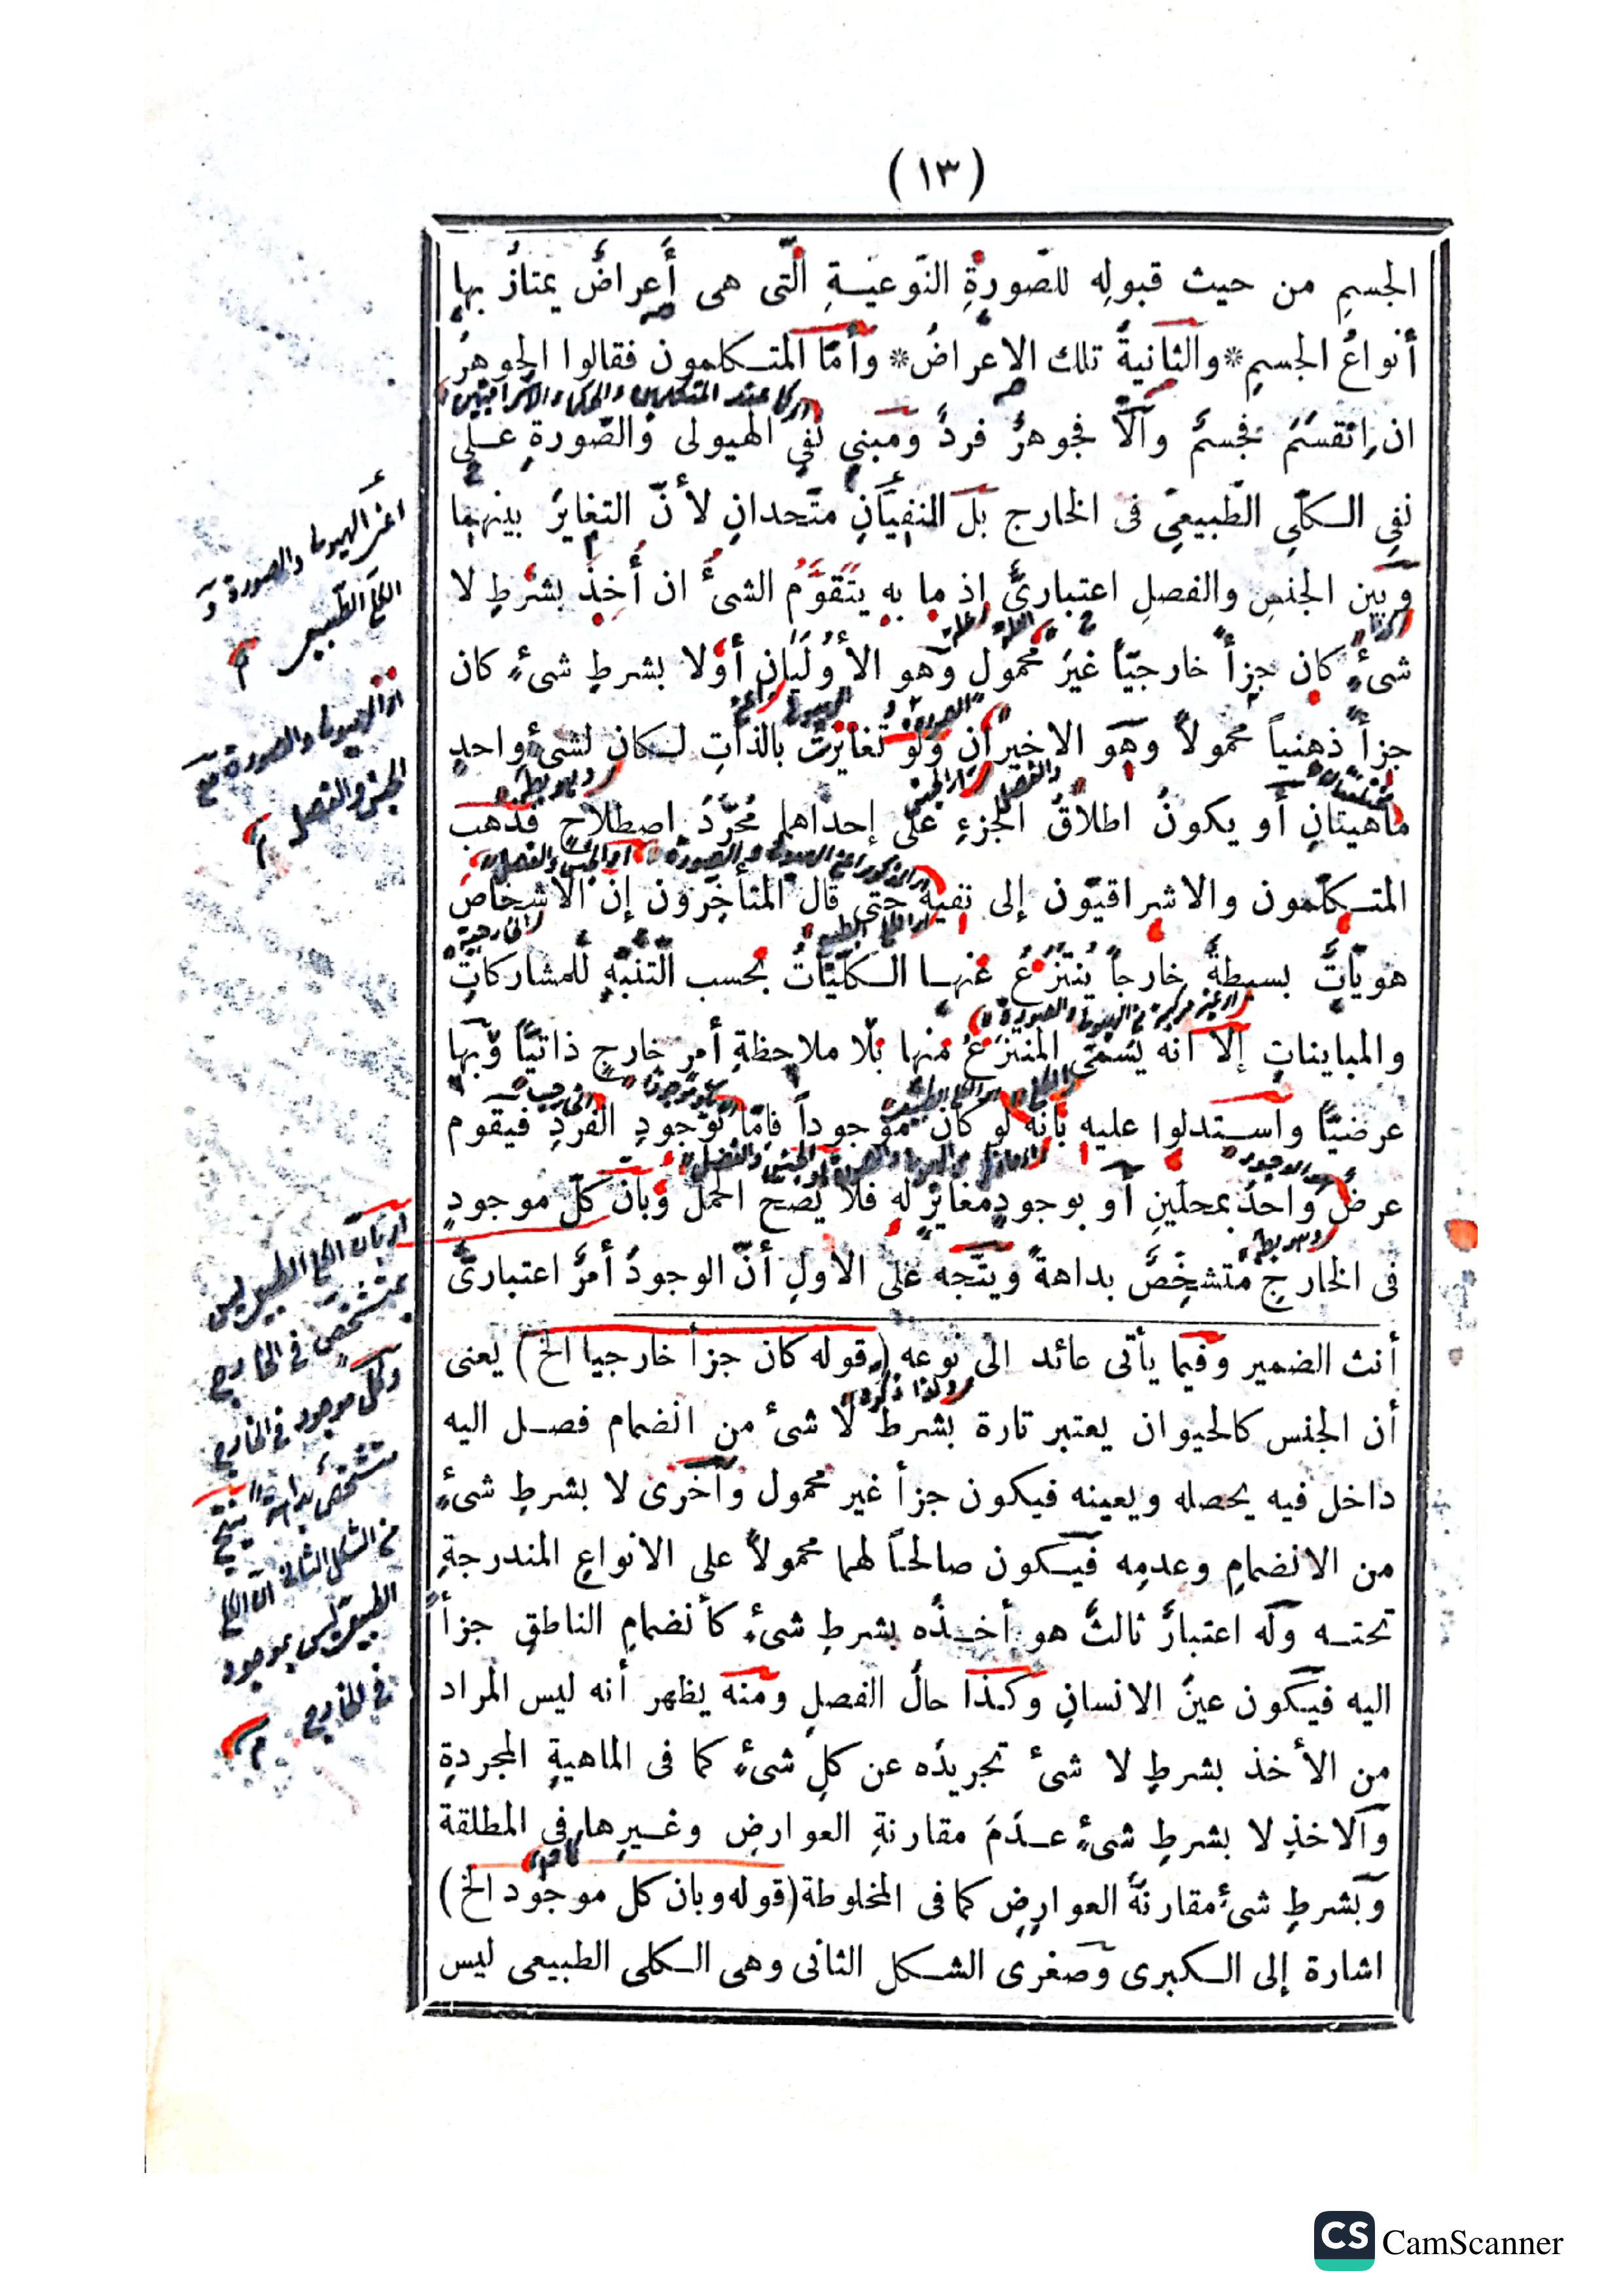 (١٣)
الجسمِ من حيث قبولِه للصّورةِ النّوعيـةِ الّتى هى أَعراضٌ يمتازُ بها
أنواعُ الجسمِ * والثانيةُ تلك الاعراضُ * وأمّا المتـكلمون فقالوا الجوهرُ
ان انقسَمَ فجسمٌ وآلّا فجوهرٌ فردٌ ومَبنى نَفىِ الهيولى والصّورةِ علـى
نفىِ الـكلّىِ الطّبيعىِّ فى الخارج بل المنفيّانِ متّحدانِ لأنّ التغايرَ بينهما
وبَين الجنسِ والفصلِ اعتبارىٌّ إذ ما به يَتَقوَّمُ الشىءُ ان أُخِذَ بشرطِ لا
شىءٍ كان جزأً خارجيّاً غيرَ محمول وهو الأوُلَيانِ أو لا بشرطِ شىءٍ كان
جزأً ذهنياً محمولاً وهو الاخيران ولو تغايرتْ بالذاتِ لـكان لشىءٍ واحدٍ
ماهيتانِ أو يكونُ اطلاقُ الجزءِ على إحداهما مُجرّدَ اصطلاحٍ فذهب
المتـكلّمون والاشراقيّون إلى نفيه حتى قال المتأخرون إنّ الاشخاصَ
هويّاتٌ بسيطةٌ خارجاً يُنتزَعُ عنهـا الـكلّيّاتُ بحسب التّنبّهِ للمشاركاتِ
والمباينات إلا أنه يُسمّى المنتزَعُ منها بلا ملاحظةِ أمرٍ خارجٍ ذاتيّاً وبها
عرضيّاً واستدلوا عليه بأنه لو كان موجوداً فإمّا بوجودِ الفردِ فيقوم
عرضٌ واحدٌ بمحلّينِ أو بوجودٍ مغايرٍ له فلا يصحّ الحملُ وبأنّ كلّ موجودٍ
فى الخارجِ مُتشخِّصٌ بداهةً ويتّجه على الأولِ أنّ الوجودَ أمرٌ اعتبارىٌّ
أنث الضمير وفيما يأتى عائد الى نوعه (قوله كان جزأ خارجيا الخ) يعنى
أن الجنس كالحيوان يعتبر تارة بشرط لا شىء من انضمام فصـل اليه
داخل فيه يحصله ويعينه فيكون جزأ غير محمول وأخرى لا بشرطِ شىءٍ
من الانضمامِ وعدمِه فيـكون صالحـاً لهما محمولاً على الانواعِ المندرجةِ
تحتـه وله اعتبارٌ ثالثٌ هو أخـذُه بشرطِ شىءٍ كأنضمامِ الناطقِ جزأً
اليه فيـكون عينَ الانسانِ وكـذا حالُ الفصلِ ومنه يظهر أنه ليس المراد
من الأخذ بشرطِ لا شىء تجريدَه عن كلِ شىءٍ كما فى الماهيةِ المجردةِ
والاخذِ لا بشرطِ شىءٍ عـدمَ مقارنةِ العوارضِ وغـيرِها فى المطلقة
وبشرطِ شىءٍ مقارنةَ العوارِضِ كما فى المخلوطة (قوله وبان كل موجود الخ)
اشارة إلى الـكبرى وصغرى الشـكل الثانى وهى الـكلى الطبيعى ليس
اعنى الهيولى والصورة و
الكلى الطبيعى
اى الهيولى والصورة مع
الجنس والفصل
اى بأن الكلى الطبيعى ليس
بمتشخص فى الخارج
وكل موجود فى الخارج
متشخص بداهة ينتج
من الشكل الثانى ان الكلى
الطبيعى ليس بموجود
فى الخارج
CS CamScanner